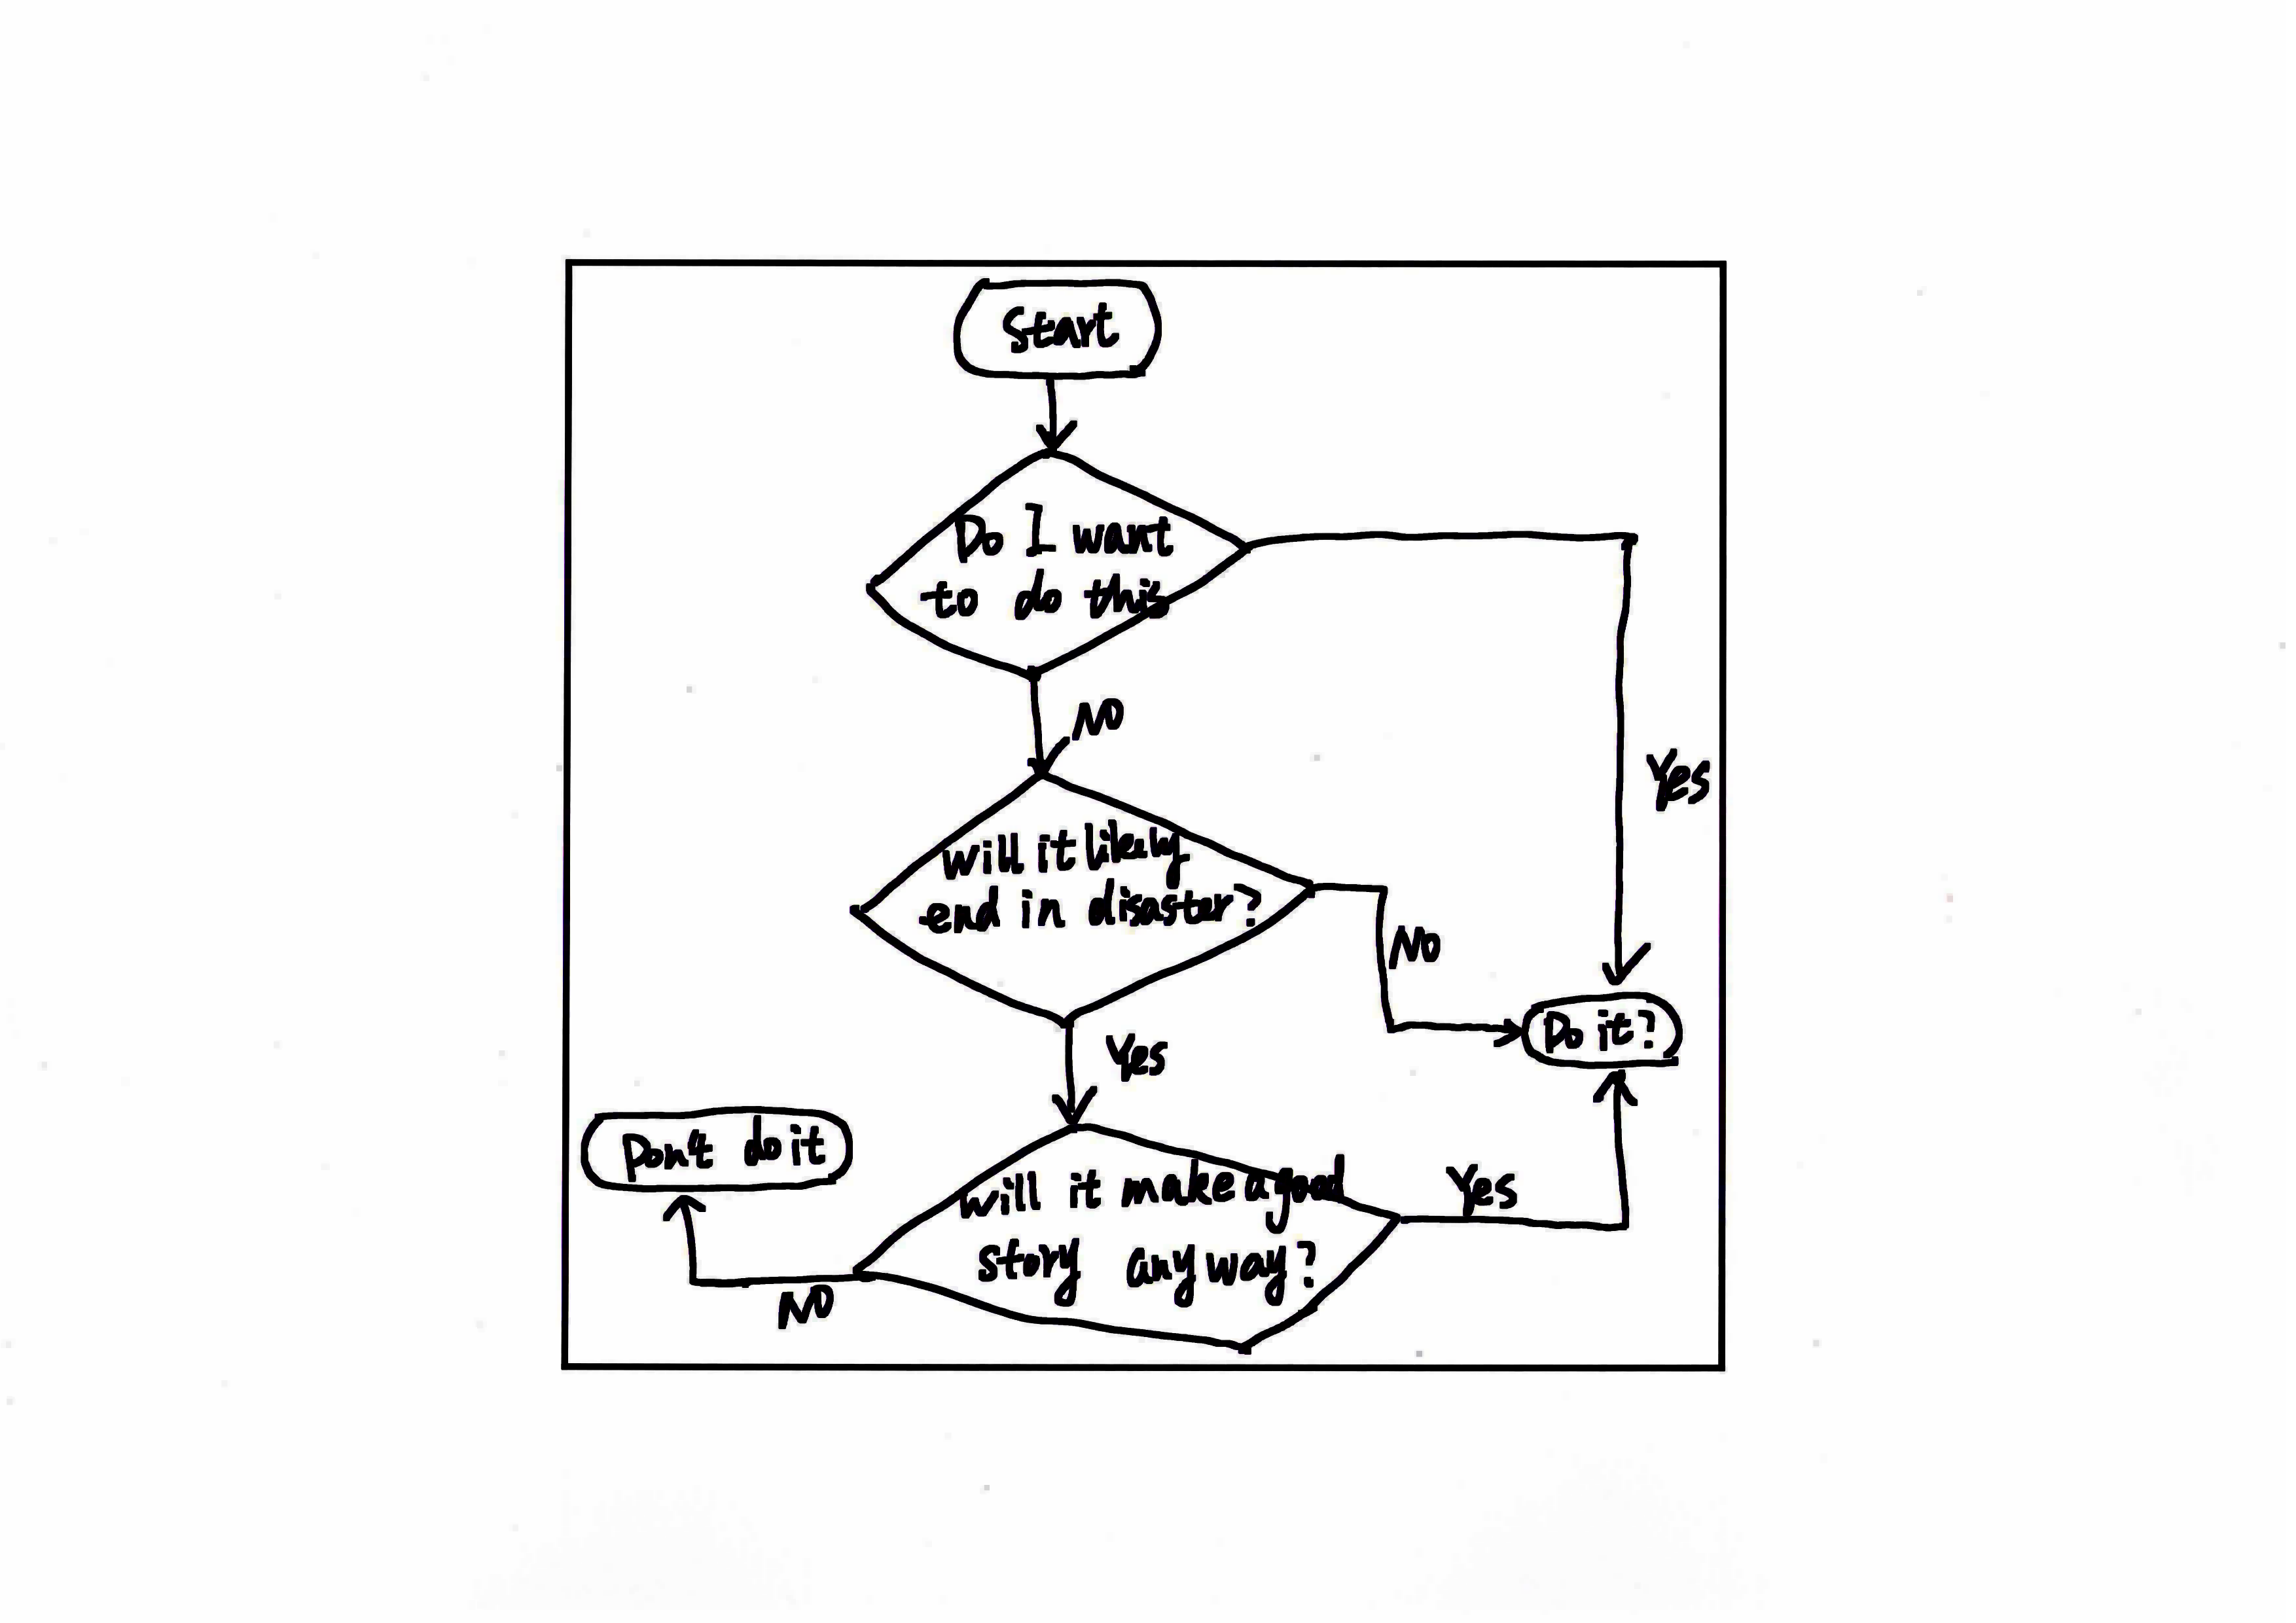 Start
Do I want
to do this
NO
Yes
will it likely
end in disaster?
NO
Do it?
Yes
Don't do it
will it make a good
story anyway?
Yes
NO